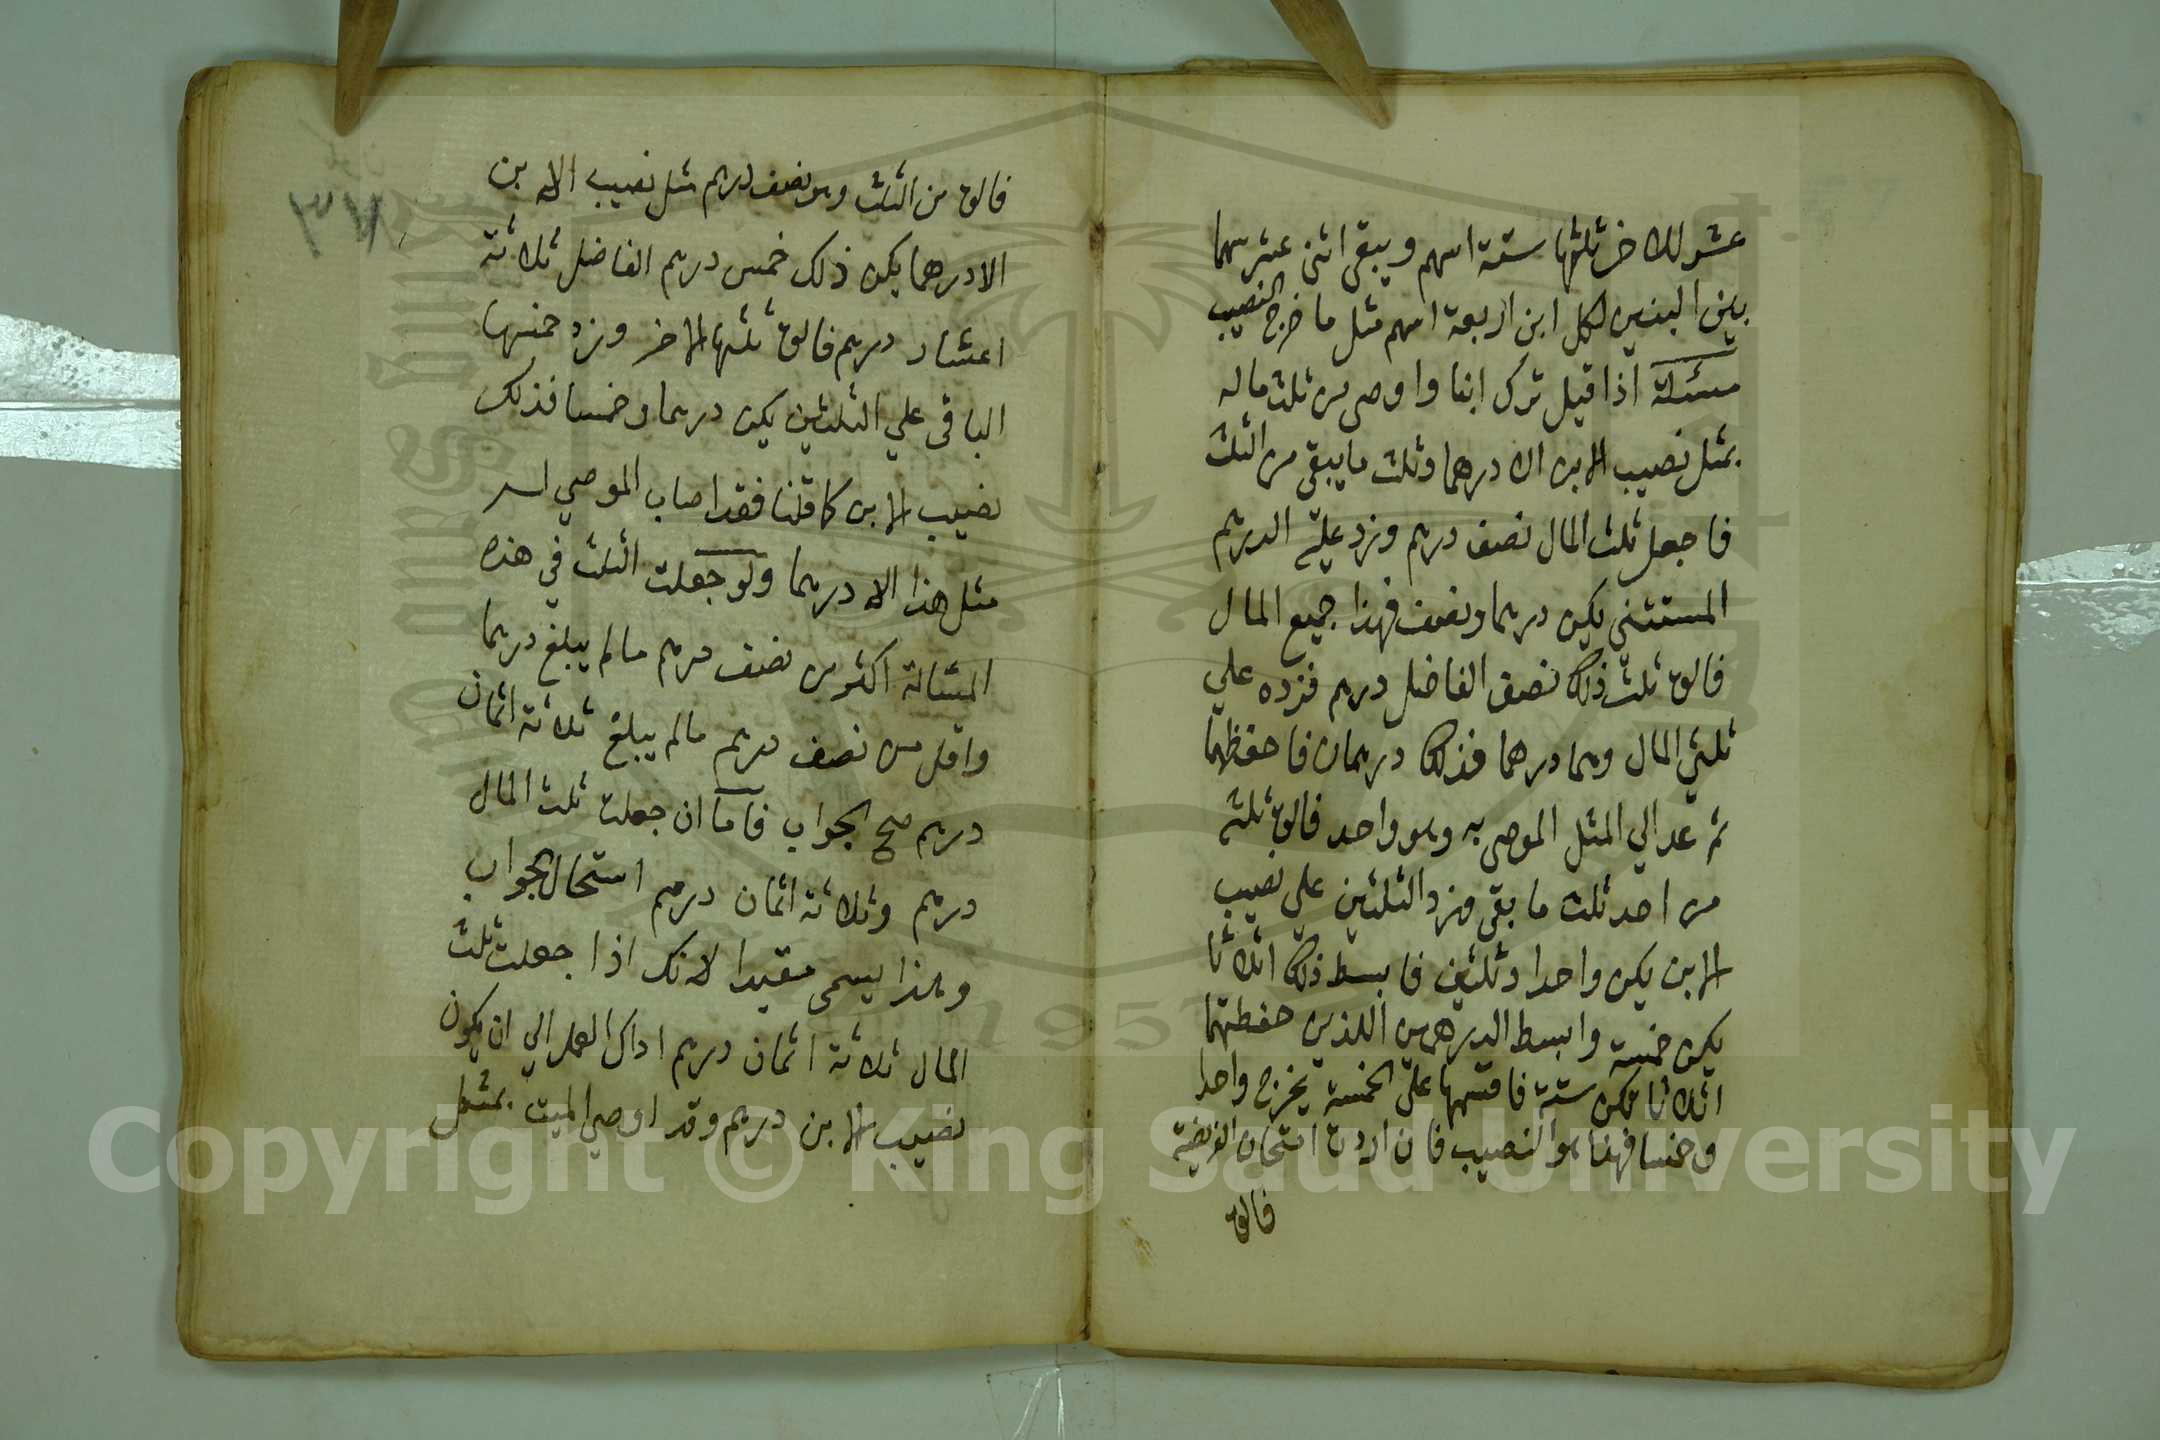 عشر للاخر ثلثها ستة اسهم ويبقى اثنى عشر سهما
بين البنين لكل ابن اربعة اسهم مثل ما خرج النصيب
مسئلة اذا قيل ترك ابنا واوصى من ثلث ماله
بمثل نصيب الابن الا درهما وثلث ما يبقى من الثلث
فاجعل ثلث المال نصف درهم وزد عليه الدرهم
المستثنى يكن درهما ونصف فهذا جميع المال
فالق ثلث ذلك نصف الفاضل درهم فزده على
ثلثي المال وهما درهما فذلك درهمان فاحفظهما
ثم عد الي المثل الموصى به وهو واحد فالق ثلثه
من احد ثلث ما بقى وزد الثلثين علي نصيب
الابن يكن واحدا وثلثين فابسط ذلك اثلاثا
يكن خمسة وابسط الدرهمين اللذين حفظتهما
اثلاثا تكن ستة فاقسمها علي الخمسة يخرج واحدا
وخمسا فهذا هو النصيب فان اردت امتحان الفريضة
فالق
فالق من الثلث وهو نصف درهم مثل نصيب الابن
الا درهما يكن ذلك خمس درهم الفاضل ثلاثة
اعشار درهم فالق ثلثها للاخر وزد خمسها
الباقى علي الثلثين يكن درهما وخمسا فذلك
نصيب الابن كما قلنا فقد اصاب الموصي له
مثل هذا الا درهما ولو جعلت الثلث في هذه
المسئالة اكثر من نصف درهم مالم يبلغ درهما
واقل من نصف درهم مالم يبلغ ثلاثة اثمان
درهم صح الجواب فاما ان جعلت ثلث المال
درهم وثلاثة اثمان درهم استحال الجواب
وهذا يسمى مقيدا لانك اذا جعلت ثلث
المال ثلاثة اثمان درهم اداك العمل الي ان يكون
نصيب الابن درهم وقد اوصي الميت بمثل
Copyright © King Saud University
1957